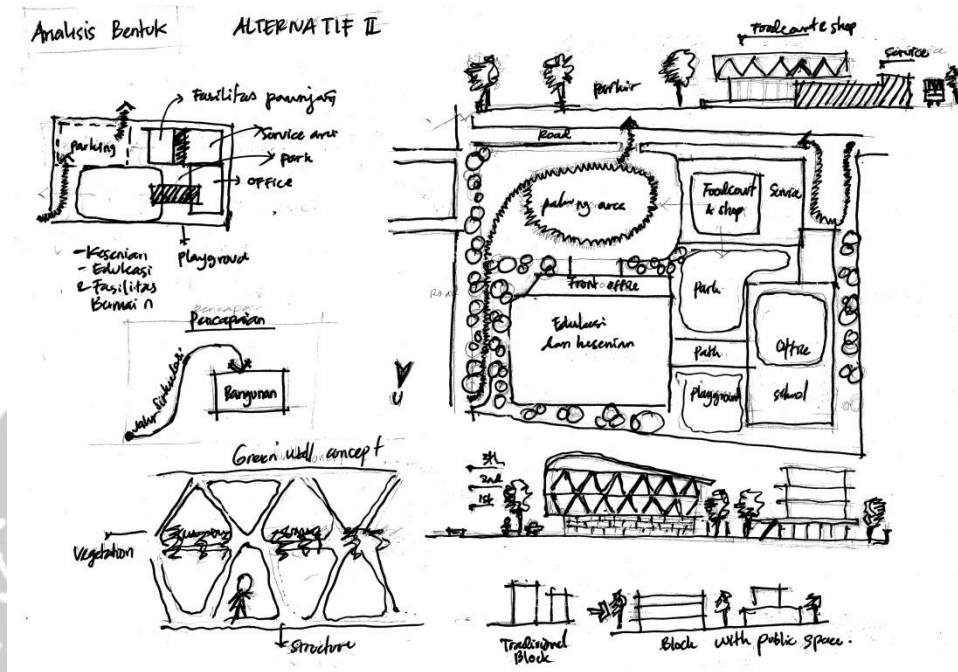 Analisis Bentuk
ALTERNATIF II
Fasilitas
parking
Service area
park
office
playgroud
- Kesenian
- Edukasi
& Fasilitas
Bermain
Pencapaian
Jalur Sirkulasi
Bangunan
Green wall concept
Vegetation
structure
Foodcourt & shop
Service
parkir
Road
parking area
Foodcourt
& shop
Service
Front office
Park
Edukasi
dan kesenian
Path
Office
playground
school
U
2nd
1st
Tradisional
Block
Block with public space.